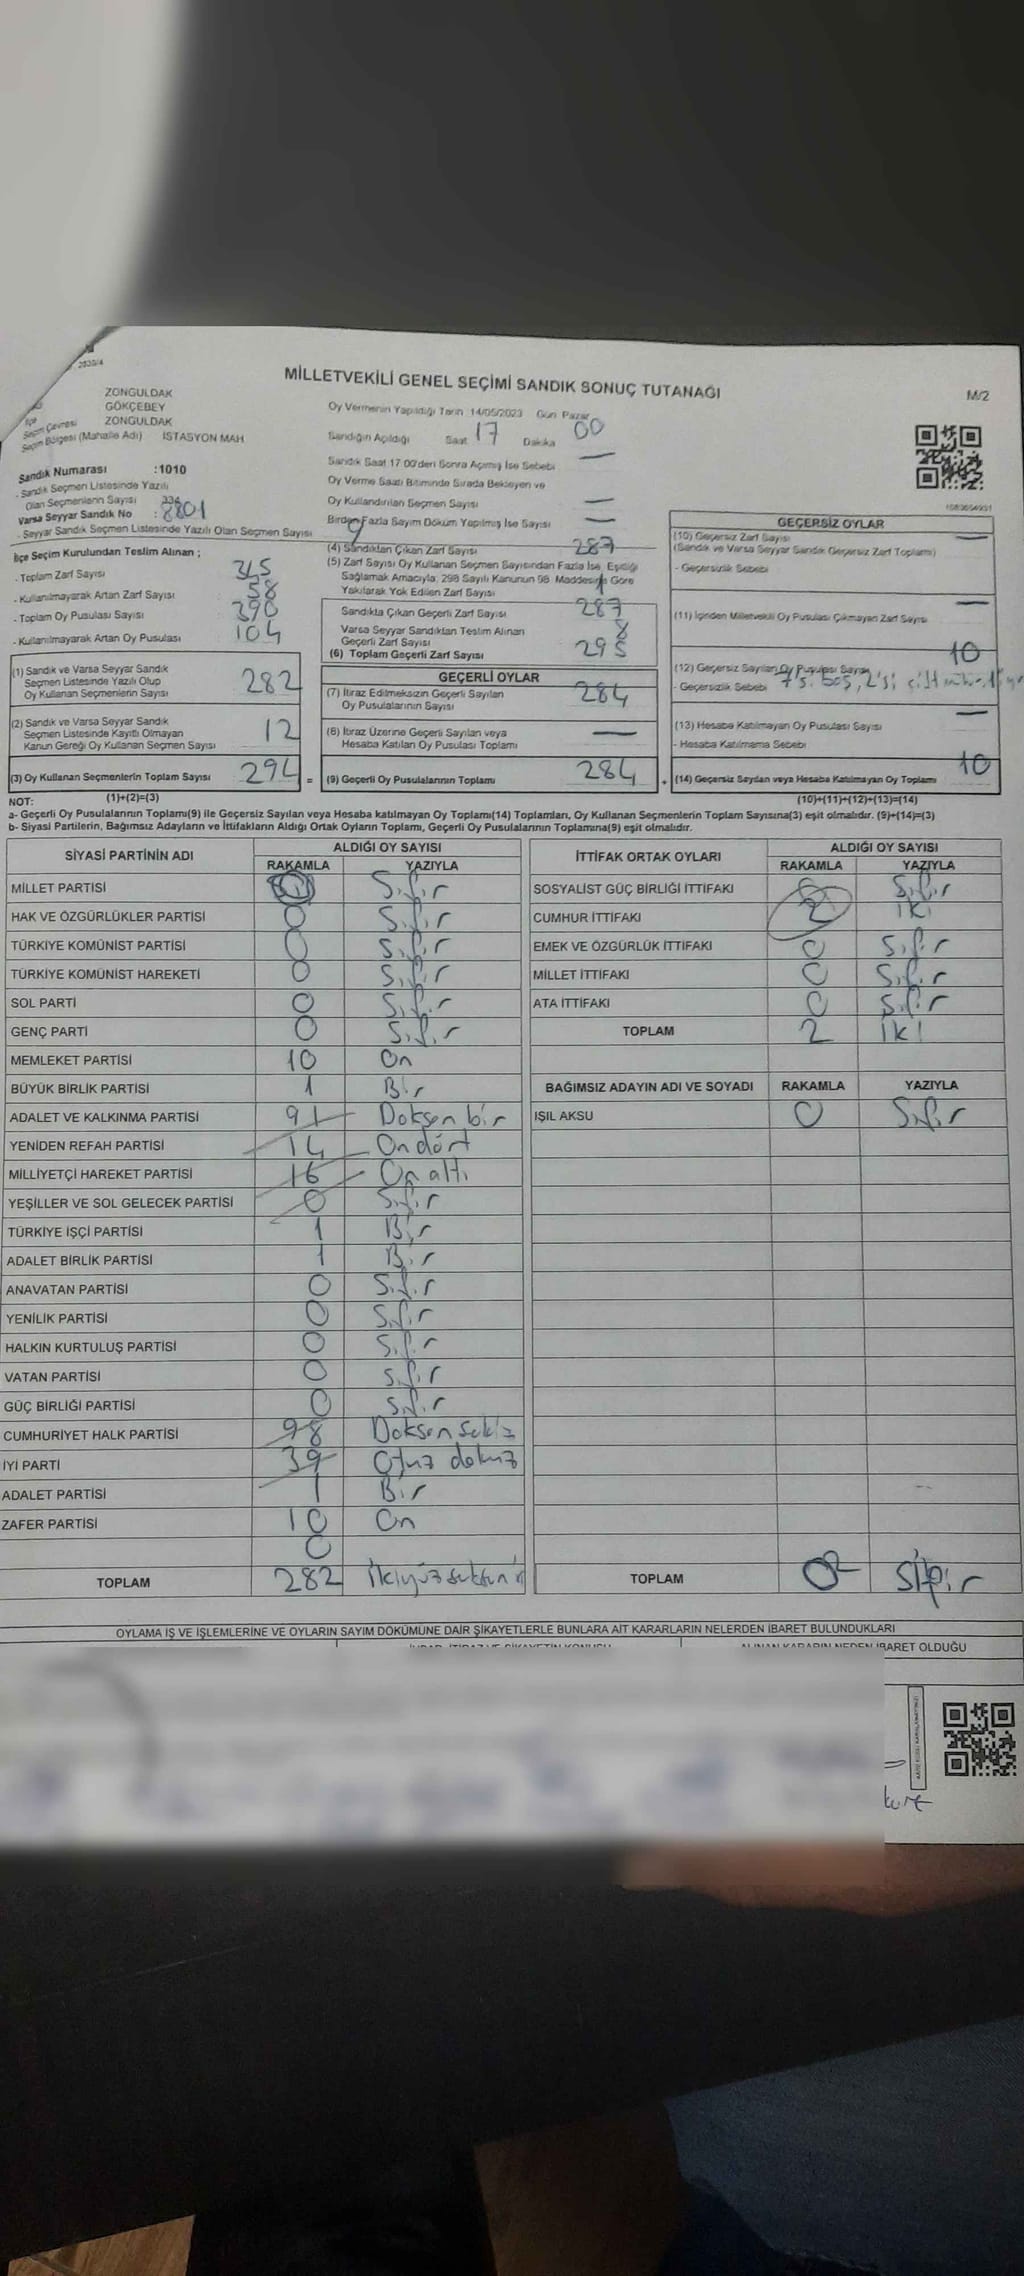 2830/4
MİLLETVEKİLİ GENEL SEÇİMİ SANDIK SONUÇ TUTANAĞI
M/2
ZONGULDAK
İlçe GÖKÇEBEY
Seçim Çevresi ZONGULDAK
Seçim Bölgesi (Mahalle Adı) İSTASYON MAH.
Oy Vermenin Yapıldığı Tarih 14/05/2023 Gün Pazar
Sandığın Açıldığı Saat 17 Dakika 00
Sandık Saat 17:00'den Sonra Açılmış İse Sebebi —
Oy Verme Saati Bitiminde Sırada Bekleyen ve
Oy Kullandırılan Seçmen Sayısı —
Birden Fazla Sayım Döküm Yapılmış İse Sayısı —
Sandık Numarası :1010
- Sandık Seçmen Listesinde Yazılı
Olan Seçmenlerin Sayısı 334
Varsa Seyyar Sandık No : 8801
- Seyyar Sandık Seçmen Listesinde Yazılı Olan Seçmen Sayısı 9
İlçe Seçim Kurulundan Teslim Alınan ;
- Toplam Zarf Sayısı 345
- Kullanılmayarak Artan Zarf Sayısı 58
- Toplam Oy Pusulası Sayısı 390
- Kullanılmayarak Artan Oy Pusulası 104
(1) Sandık ve Varsa Seyyar Sandık
Seçmen Listesinde Yazılı Olup
Oy Kullanan Seçmenlerin Sayısı 282
(2) Sandık ve Varsa Seyyar Sandık
Seçmen Listesinde Kayıtlı Olmayan
Kanun Gereği Oy Kullanan Seçmen Sayısı 12
(3) Oy Kullanan Seçmenlerin Toplam Sayısı 294 =
(4) Sandıktan Çıkan Zarf Sayısı 287
(5) Zarf Sayısı Oy Kullanan Seçmen Sayısından Fazla İse, Eşitliği
Sağlamak Amacıyla, 298 Sayılı Kanunun 98. Maddesine Göre
Yakılarak Yok Edilen Zarf Sayısı 1
Sandıkta Çıkan Geçerli Zarf Sayısı 287
Varsa Seyyar Sandıktan Teslim Alınan
Geçerli Zarf Sayısı 8
(6) Toplam Geçerli Zarf Sayısı 295
GEÇERLİ OYLAR
(7) İtiraz Edilmeksizin Geçerli Sayılan
Oy Pusulalarının Sayısı 284
(8) İtiraz Üzerine Geçerli Sayılan veya
Hesaba Katılan Oy Pusulası Toplamı —
(9) Geçerli Oy Pusulalarının Toplamı 284 +
GEÇERSİZ OYLAR
(10) Geçersiz Zarf Sayısı —
(Sandık ve Varsa Seyyar Sandık Geçersiz Zarf Toplamı)
- Geçersizlik Sebebi
(11) İçinden Milletvekili Oy Pusulası Çıkmayan Zarf Sayısı —
(12) Geçersiz Sayılan Oy Pusulası Sayısı 10
- Geçersizlik Sebebi 7'si boş, 2'si çift
(13) Hesaba Katılmayan Oy Pusulası Sayısı —
- Hesaba Katılmama Sebebi
(14) Geçersiz Sayılan veya Hesaba Katılmayan Oy Toplamı 10
NOT: (1)+(2)=(3) (10)+(11)+(12)+(13)=(14)
a- Geçerli Oy Pusulalarının Toplamı(9) ile Geçersiz Sayılan veya Hesaba katılmayan Oy Toplamı(14) Toplamları, Oy Kullanan Seçmenlerin Toplam Sayısına(3) eşit olmalıdır. (9)+(14)=(3)
b- Siyasi Partilerin, Bağımsız Adayların ve İttifakların Aldığı Ortak Oyların Toplamı, Geçerli Oy Pusulalarının Toplamına(9) eşit olmalıdır.
SİYASİ PARTİNİN ADI ALDIĞI OY SAYISI
RAKAMLA YAZIYLA
MİLLET PARTİSİ Sıfır
HAK VE ÖZGÜRLÜKLER PARTİSİ 0 Sıfır
TÜRKİYE KOMÜNİST PARTİSİ 0 Sıfır
TÜRKİYE KOMÜNİST HAREKETİ 0 Sıfır
SOL PARTİ 0 Sıfır
GENÇ PARTİ 0 Sıfır
MEMLEKET PARTİSİ 10 On
BÜYÜK BİRLİK PARTİSİ 1 Bir
ADALET VE KALKINMA PARTİSİ 91 Doksan bir
YENİDEN REFAH PARTİSİ 14 On dört
MİLLİYETÇİ HAREKET PARTİSİ 16 On altı
YEŞİLLER VE SOL GELECEK PARTİSİ 0 Sıfır
TÜRKİYE İŞÇİ PARTİSİ 1 Bir
ADALET BİRLİK PARTİSİ 1 Bir
ANAVATAN PARTİSİ 0 Sıfır
YENİLİK PARTİSİ 0 Sıfır
HALKIN KURTULUŞ PARTİSİ 0 Sıfır
VATAN PARTİSİ 0 Sıfır
GÜÇ BİRLİĞİ PARTİSİ 0 Sıfır
CUMHURİYET HALK PARTİSİ 98 Doksan sekiz
İYİ PARTİ 39 Otuz dokuz
ADALET PARTİSİ 1 Bir
ZAFER PARTİSİ 10 On
0
TOPLAM 282 İkiyüzseksen
İTTİFAK ORTAK OYLARI ALDIĞI OY SAYISI
RAKAMLA YAZIYLA
SOSYALİST GÜÇ BİRLİĞİ İTTİFAKI 0 Sıfır
CUMHUR İTTİFAKI 2 iki
EMEK VE ÖZGÜRLÜK İTTİFAKI 0 Sıfır
MİLLET İTTİFAKI 0 Sıfır
ATA İTTİFAKI 0 Sıfır
TOPLAM 2 iki
BAĞIMSIZ ADAYIN ADI VE SOYADI RAKAMLA YAZIYLA
IŞIL AKSU 0 Sıfır
TOPLAM 0 Sıfır
OYLAMA İŞ VE İŞLEMLERİNE VE OYLARIN SAYIM DÖKÜMÜNE DAİR ŞİKAYETLERLE BUNLARA AİT KARARLARIN NELERDEN İBARET BULUNDUKLARI
İHBAR, İTİRAZ VE ŞİKAYETİN KONUSU ALINAN KARARIN NEDEN İBARET OLDUĞU